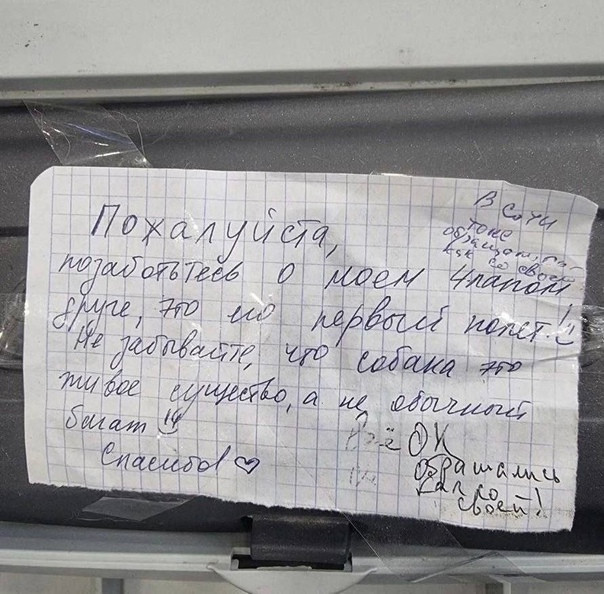 Пожалуйста,
позаботьтесь о моем 4лапом
друге, это его первый полет!!
Не забывайте, что собака это
живое существо, а не обычный
багаж!!
Спасибо! ♡
В Сочи
тоже
обращались
как со своей
Всё ОК
обращались
как со
своей!